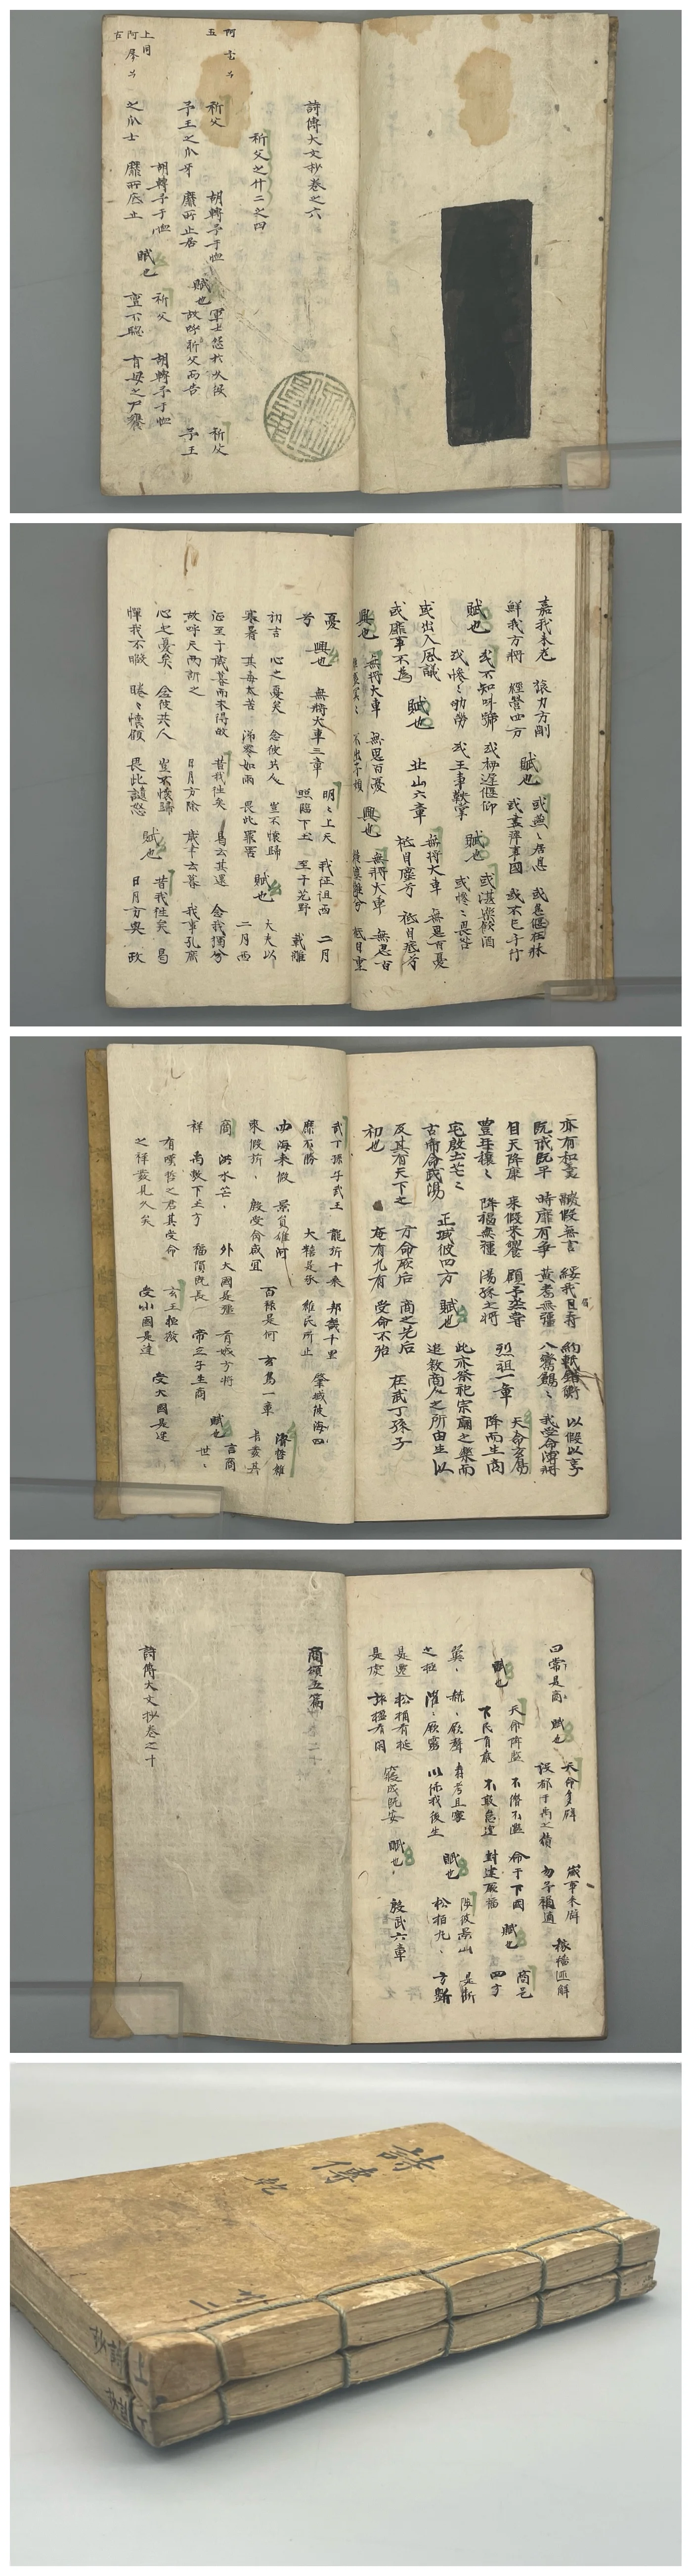 詩傳大文抄卷之六
祈父之什二之四
祈父
胡轉予于恤
賦也
軍士怨於久役
祈父
予王之爪牙
靡所止居
故呼祈父而告
予王
胡轉予于恤
祈父
胡轉予于恤
之爪士
靡所底止
賦也
亶不聰
有母之尸饔
上同
嘉我未老
旅力方剛
賦也
或燕〻居息
或息偃在牀
鮮我方將
經營四方
或盡瘁事國
或不已于行
賦也
或不知叫號
或栖遲偃仰
賦也
或湛樂飮酒
或慘〻劬勞
或王事鞅掌
或慘〻畏咎
或出入風議
賦也
北山六章
無將大車
無思百憂
或靡事不爲
祗自塵兮
祗自疧兮
興也
無將大車
無思百憂
興也
無將大車
無思百
憂
興也
無將大車三章
明〻上天
我征徂西
二月
兮
照臨下土
至于艽野
載離
初吉
心之憂矣
念彼共人
豈不懷歸
賦也
大夫以
寒暑
其毒大苦
涕零如雨
畏此罪罟
二月西
征至于歲暮而未得故
昔我往矣
曷云其還
念我獨兮
故呼天而訴之
日月方除
歲聿云暮
我事孔庶
心之憂矣
念彼共人
豈不懷歸
賦也
昔我往矣
曷
憚我不暇
睠〻懷顧
畏此譴怒
日月方奧
政
亦有和羹
鬷假無言
綏我眉壽
約軝錯衡
以假以享
旣戒旣平
時靡有爭
黃耉無疆
八鸞鶬〻
我受命溥將
自天降康
來假來饗
顧予烝嘗
烈祖一章
天命玄鳥
豐年穰〻
降福無疆
湯孫之將
降而生商
宅殷土芒〻
正域彼四方
賦也
此亦祭祀宗廟之樂而
古帝命武湯
追敘商人之所由生以
及其有天下之
方命厥后
商之先后
在武丁孫子
初也
奄有九有
受命不殆
武丁孫子武王
龍旂十乘
邦畿千里
肇域彼海四
靡不勝
大糦是承
維民所止
海來假
景員維河
百祿是何
玄鳥一章
濬哲維
來假祈〻
殷受命咸宜
長發其
商
洪水芒〻
外大國是疆
有娀方將
賦也
言商
祥
禹敷下土方
幅隕旣長
帝立子生商
世〻
有濬哲之君其受命
玄王桓撥
受大國是達
之祥發見久矣
受小國是達
曰常是商
賦也
天命多辟
歲事來辟
稼穡匪解
設都于禹之績
勿予禍適
賦也
天命降監
不僭不濫
命于下國
賦也
商邑
下民有嚴
不敢怠遑
封建厥福
四方
翼〻
赫〻厥聲
壽考且寧
陟彼景山
是斷
之極
濯〻厥靈
以保我後生
賦也
松柏丸〻
方斲
是遷
松桷有梴
寢成孔安
賦也
殷武六章
是虔
旅楹有閑
商頌五篇
詩傳大文抄卷之十
詩傳
詩抄
上